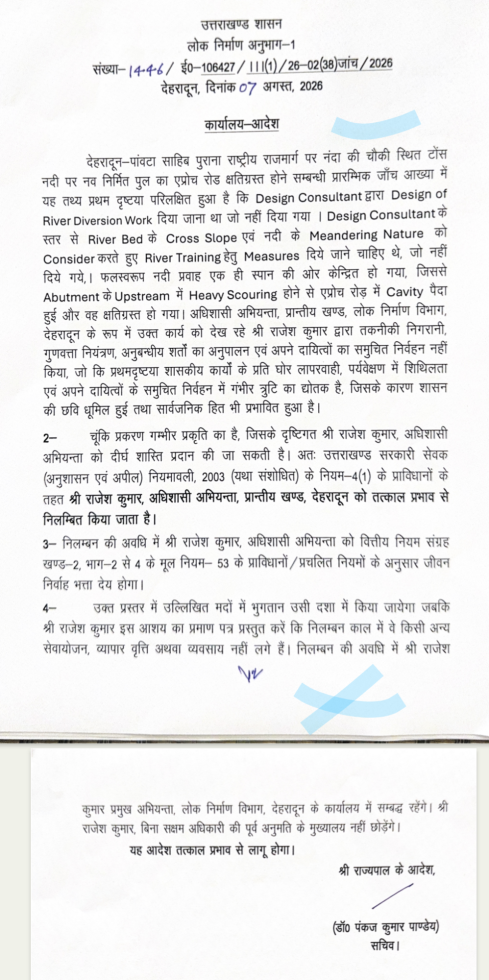 उत्तराखण्ड शासन
लोक निर्माण अनुभाग–1
संख्या–1446/ ई0–106427/III(1)/26–02(38)जांच/2026
देहरादून, दिनांक 07 अगस्त, 2026
कार्यालय–आदेश
देहरादून–पांवटा साहिब पुराना राष्ट्रीय राजमार्ग पर नंदा की चौकी स्थित टोंस
नदी पर नव निर्मित पुल का एप्रोच रोड क्षतिग्रस्त होने सम्बन्धी प्रारम्भिक जाँच आख्या में
यह तथ्य प्रथम दृष्टया परिलक्षित हुआ है कि Design Consultant द्वारा Design of
River Diversion Work दिया जाना था जो नहीं दिया गया । Design Consultant के
स्तर से River Bed के Cross Slope एवं नदी के Meandering Nature को
Consider करते हुए River Training हेतु Measures दिये जाने चाहिए थे, जो नहीं
दिये गये,। फलस्वरूप नदी प्रवाह एक ही स्पान की ओर केन्द्रित हो गया, जिससे
Abutment के Upstream में Heavy Scouring होने से एप्रोच रोड़ में Cavity पैदा
हुई और वह क्षतिग्रस्त हो गया। अधिशासी अभियन्ता, प्रान्तीय खण्ड, लोक निर्माण विभाग,
देहरादून के रूप में उक्त कार्य को देख रहे श्री राजेश कुमार द्वारा तकनीकी निगरानी,
गुणवत्ता नियंत्रण, अनुबन्धीय शर्तों का अनुपालन एवं अपने दायित्वों का समुचित निर्वहन नहीं
किया, जो कि प्रथमदृष्टया शासकीय कार्यों के प्रति घोर लापरवाही, पर्यवेक्षण में शिथिलता
एवं अपने दायित्वों के समुचित निर्वहन में गंभीर त्रुटि का द्योतक है, जिसके कारण शासन
की छवि धूमिल हुई तथा सार्वजनिक हित भी प्रभावित हुआ है।
2– चूंकि प्रकरण गम्भीर प्रकृति का है, जिसके दृष्टिगत श्री राजेश कुमार, अधिशासी
अभियन्ता को दीर्घ शास्ति प्रदान की जा सकती है। अतः उत्तराखण्ड सरकारी सेवक
(अनुशासन एवं अपील) नियमावली, 2003 (यथा संशोधित) के नियम–4(1) के प्राविधानों के
तहत श्री राजेश कुमार, अधिशासी अभियन्ता, प्रान्तीय खण्ड, देहरादून को तत्काल प्रभाव से
निलम्बित किया जाता है।
3– निलम्बन की अवधि में श्री राजेश कुमार, अधिशासी अभियन्ता को वित्तीय नियम संग्रह
खण्ड–2, भाग–2 से 4 के मूल नियम– 53 के प्राविधानों/प्रचलित नियमों के अनुसार जीवन
निर्वाह भत्ता देय होगा।
4– उक्त प्रस्तर में उल्लिखित मदों में भुगतान उसी दशा में किया जायेगा जबकि
श्री राजेश कुमार इस आशय का प्रमाण पत्र प्रस्तुत करें कि निलम्बन काल में वे किसी अन्य
सेवायोजन, व्यापार वृत्ति अथवा व्यवसाय नहीं लगे हैं। निलम्बन की अवधि में श्री राजेश
कुमार प्रमुख अभियन्ता, लोक निर्माण विभाग, देहरादून के कार्यालय में सम्बद्ध रहेंगे। श्री
राजेश कुमार, बिना सक्षम अधिकारी की पूर्व अनुमति के मुख्यालय नहीं छोड़ेंगे।
यह आदेश तत्काल प्रभाव से लागू होगा।
श्री राज्यपाल के आदेश,
(डॉ0 पंकज कुमार पाण्डेय)
सचिव।